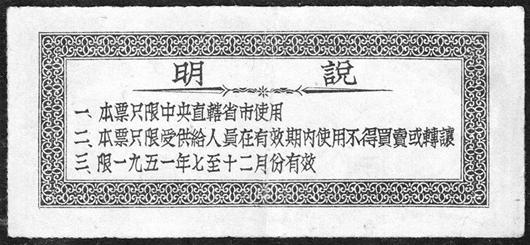 說明
一、本票只限中央直轄省市使用
二、本票只限受供給人員在有效期內使用不得買賣或轉讓
三、限一九五一年七至十二月份有效